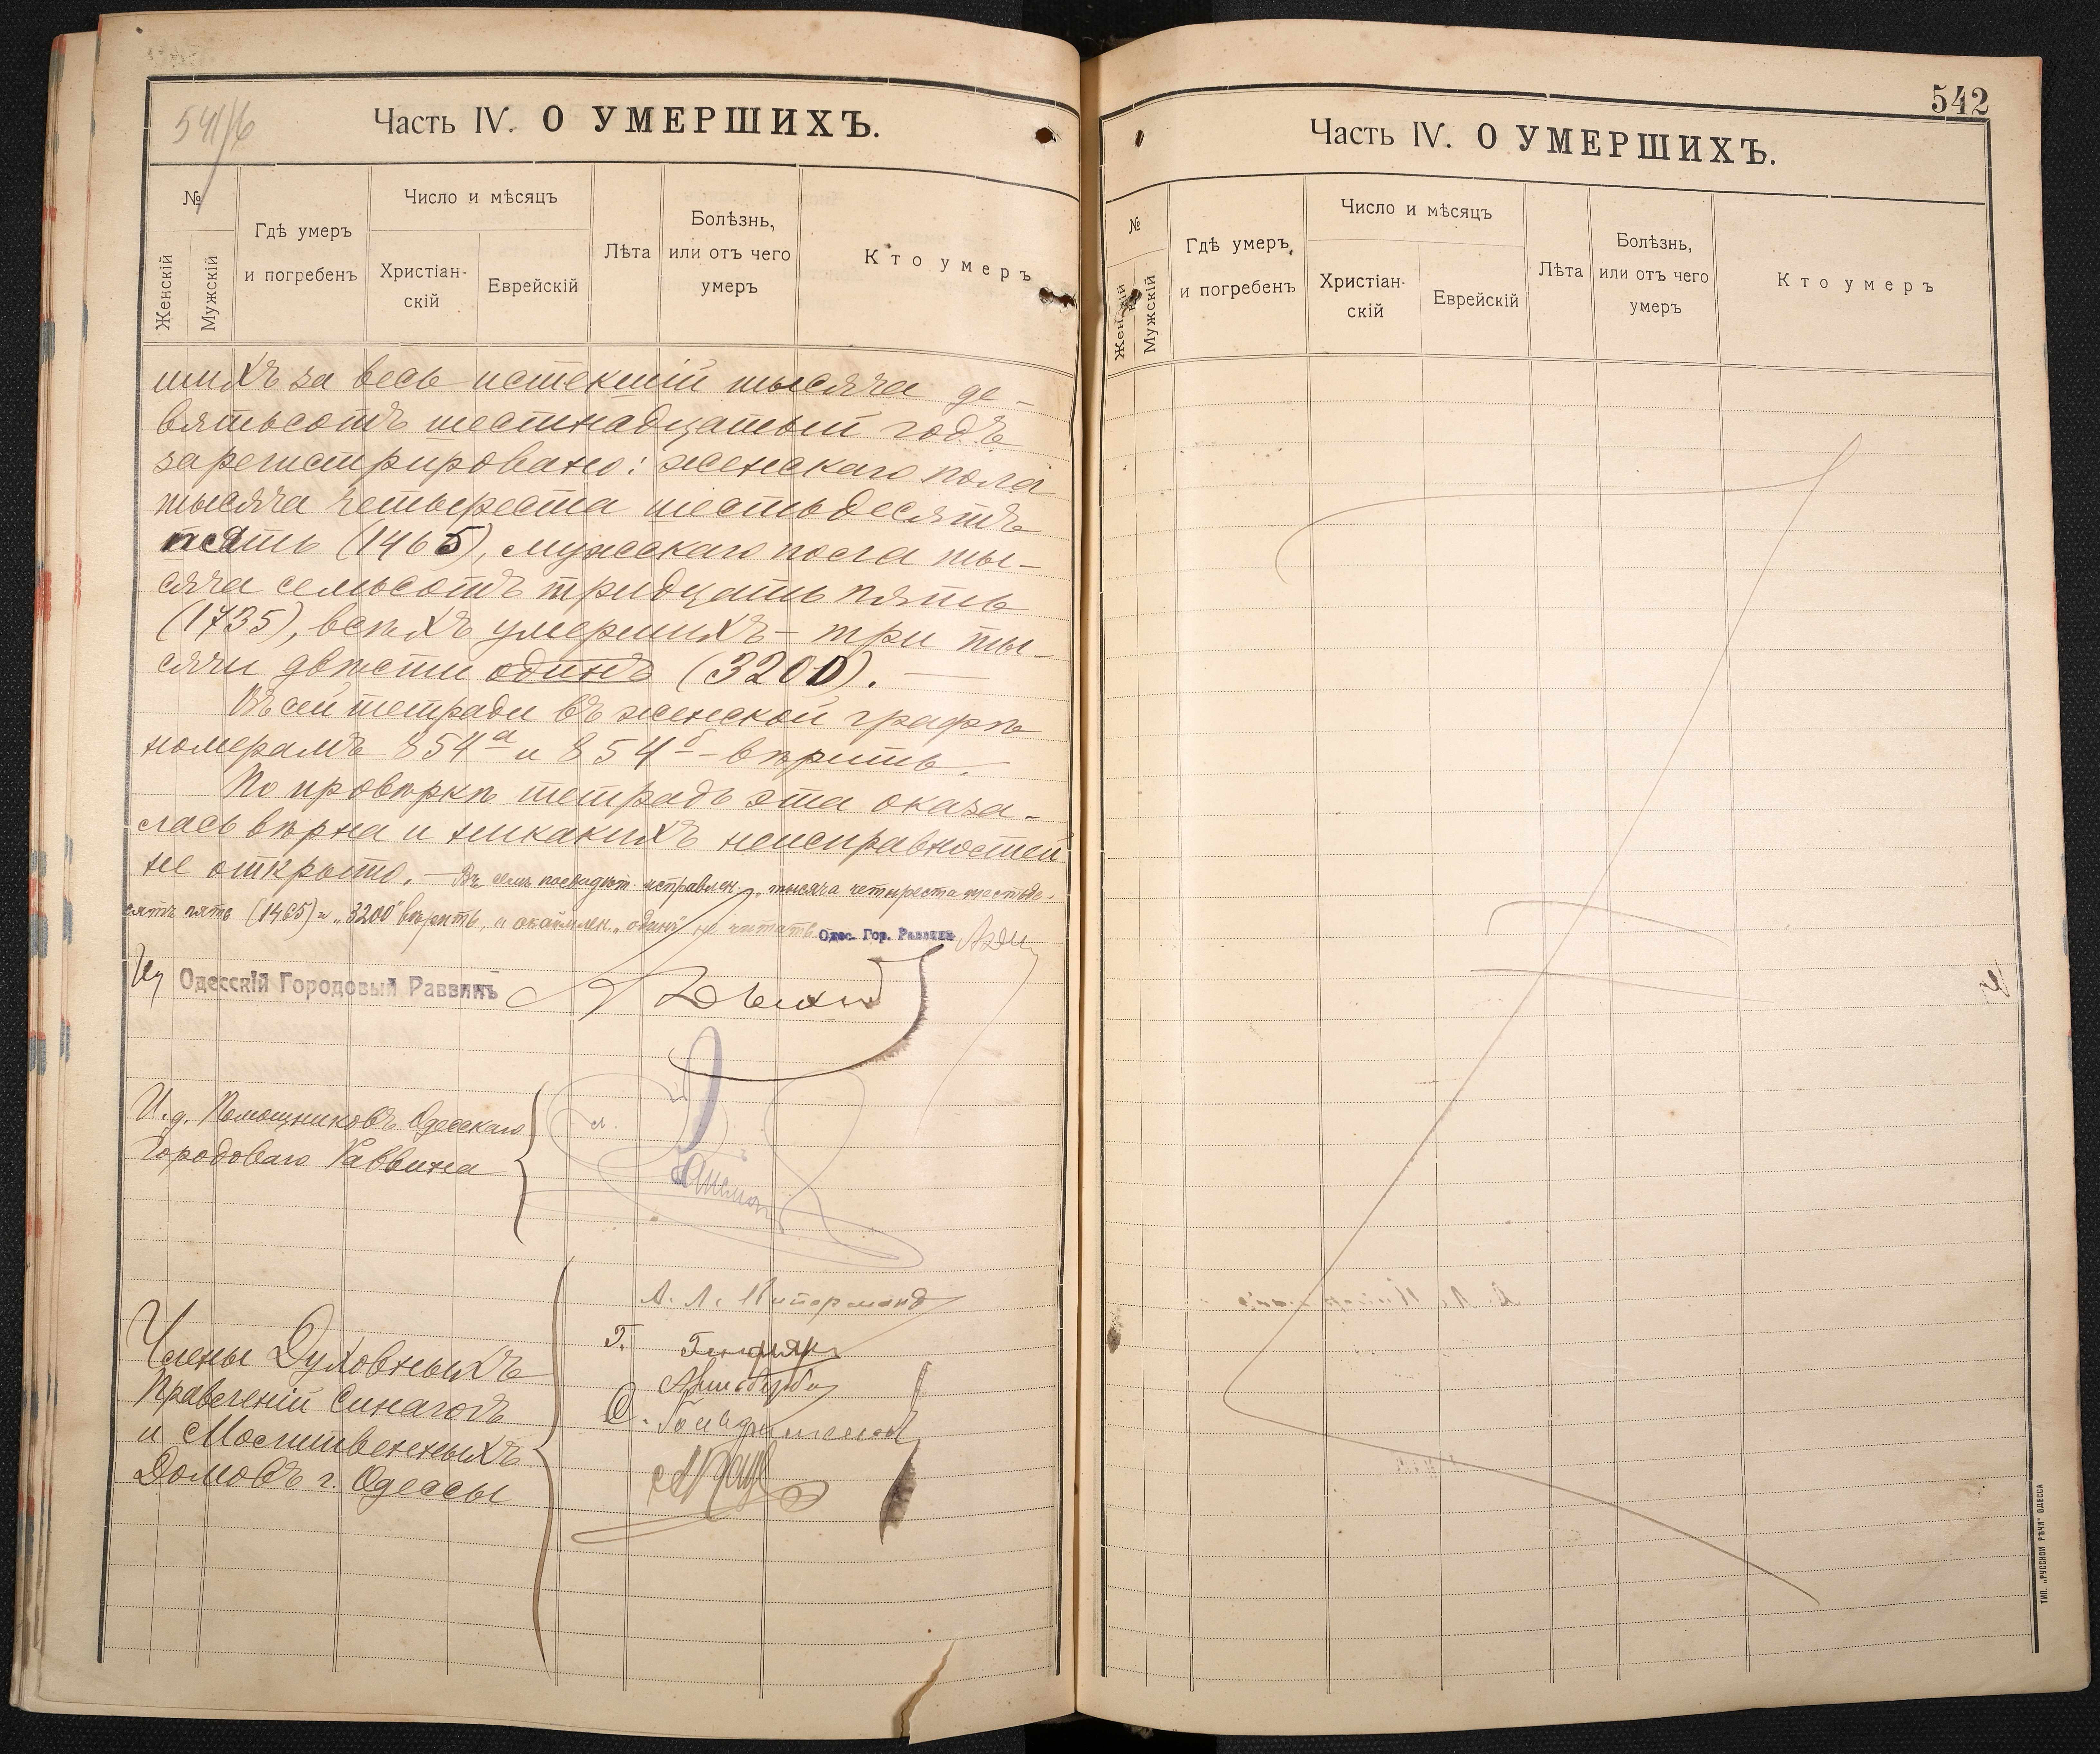 541/6
Часть IV. О УМЕРШИХЪ.
№
Женскій
Мужскій
Гдѣ умеръ
и погребенъ
Число и мѣсяцъ
Христіан-
скій
Еврейскій
Лѣта
Болѣзнь,
или отъ чего
умеръ
Кто умеръ
шихъ за весь истекшій тысяча де-
вятьсотъ шестнадцатый годъ
зарегистрировано: женскаго пола
тысяча четыреста шестьдесятъ
пять (1465), мужскаго пола ты-
сяча семьсотъ тридцать пять
(1735), всѣхъ умершихъ - три ты-
сячи двѣсти одинъ (3200).
Въ сей тетради въ женской графѣ
номерамъ 854а и 854б - вѣрить.
По провѣркѣ тетрадь эта оказа-
лась вѣрна и никакихъ неисправностей
не открыто. - Въ семъ исправлен. "тысяча четыреста шестьде-
сятъ пять (1465) и "3200" вѣрить, а "одинъ" не читать Одес. Гор. Раввинъ
Одесскій Городовый Раввинъ
И. д. Помощниковъ Одесскаго
Городоваго Раввина
А. Л. Кипермандъ
Г.
Члены Духовныхъ
Правленій Синагогъ
и Молитвенныхъ
Домовъ г. Одессы
542
Часть IV. О УМЕРШИХЪ.
№
Женскій
Мужскій
Гдѣ умеръ
и погребенъ
Число и мѣсяцъ
Христіан-
скій
Еврейскій
Лѣта
Болѣзнь,
или отъ чего
умеръ
Кто умеръ
ТИП. „РУССКОЙ РѢЧИ" ОДЕССА